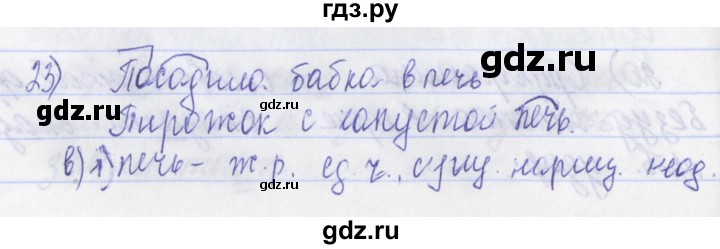 гдз.ру
23) Посадила бабка в печь
gdz.ru
Пирожок с капустой печь.
в) 1) печь – ж.р. ед.ч., сущ. нариц. неод.
gdz.ru
gdz.ru
gdz.ru
gdz.ru
gdz.ru
gdz.ru